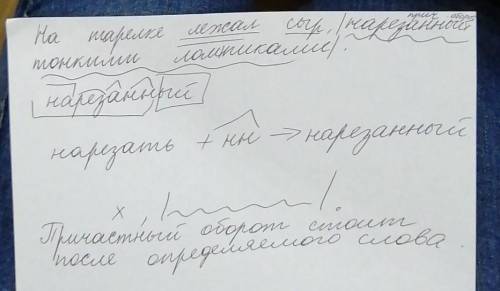 прич. оборот
На тарелке лежал сыр, |нарезанный
тонкими ломтиками|.
нарезанный
нарезать + нн → нарезанный
х, |~~~|.
Причастный оборот стоит
после определяемого слова.